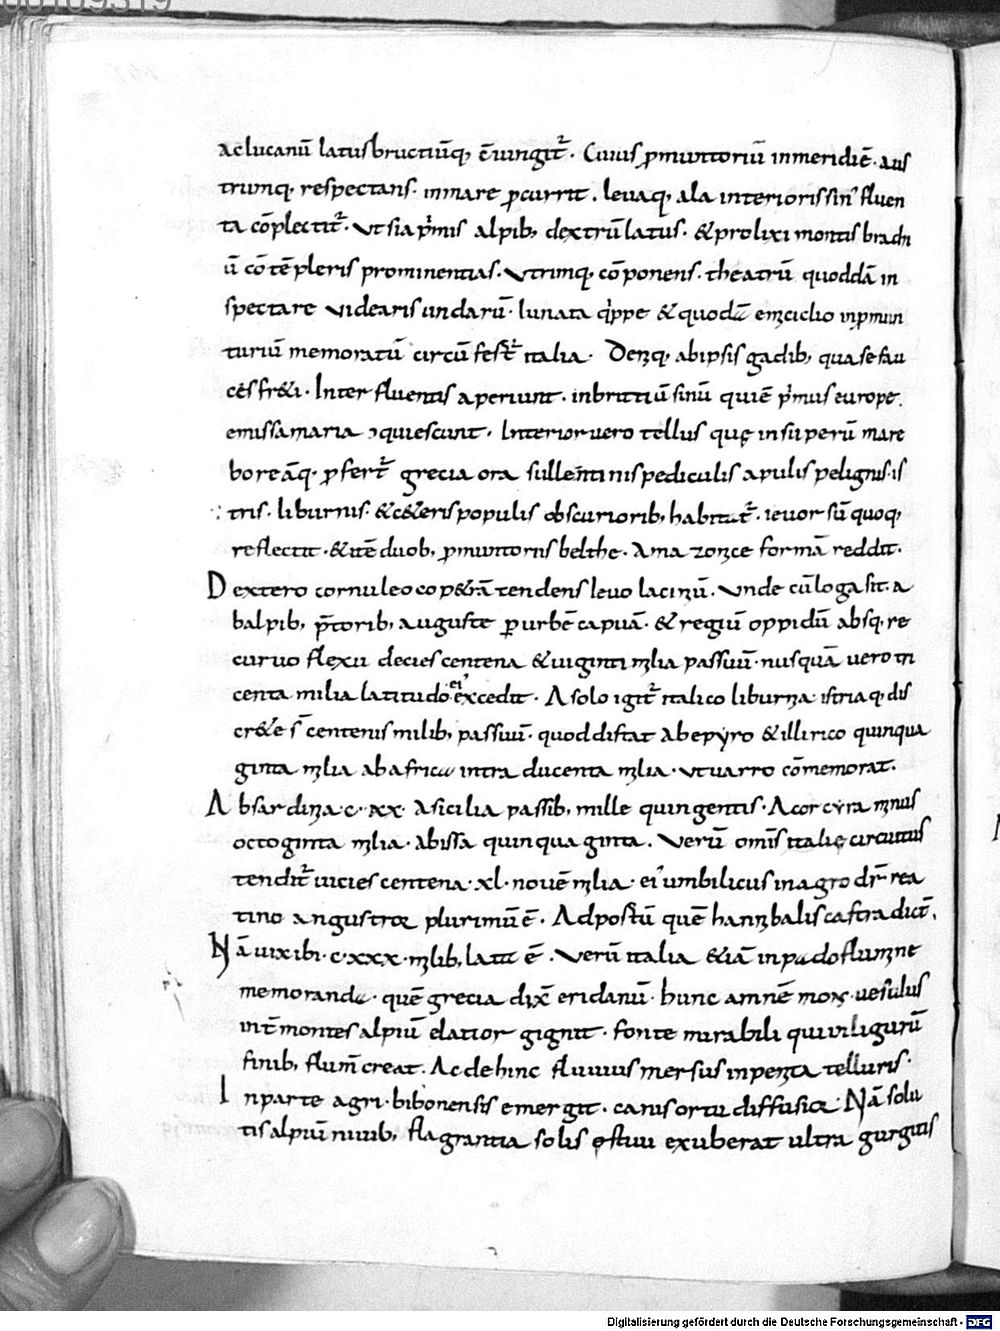 aclucanū latusbructiūq; c̄iungit᷑. Cuius ꝓmuntoriū inmeridiē. aus
trumq; respectans. inmare ꝓcurrit. levaq; ala interiorissin' fluen
ta cōplectit᷑. Vt sia p̍mis alpib; dextrū latus. & prolixi montis brachi
ū cōtēpleris prominentias. Vtrimq; cōponens. theatrū quoddā in
spectare videaris undarū. lunata q̍ppe & quodā emiciclio inꝓmun
turiū memoratū circū fert᷑ italia. Deniq; abipsis gadib; quasefau
cēs fr&i. Inter fluentis aperiunt. inbrittiū sinū quiē p̍mus europę.
emissamaria ꝯquiescunt. Interior uero tellus quę insuperū mare
boreāq; ꝓfert᷑ grecia ora sullentinispediculis apulis pelignis. is
tris. liburnis. & c&erispopulis obscuriorib; habitat᷑. ieuor sū quoq;
reflectit. & itē duob; ꝓmuntoriis belthe. Amazonice formā reddit.
Dextero cornuleocop&rā tendens levo lacinū. Vnde cū loga sit. a
balpib; p̄torib; auguste ꝑurbē capuā. & regiū oppidū absq; re
curuo flexu deciescentena & uiginti milia passuū. nusquā uero tri
centa milia latitudo ei' excedit. A solo igit᷑ italico liburnia istria q; dis
cr&e s̄ centenis milib; passuū. quod distat abepyro & illirico quinqua
ginta milia ab africa intra ducenta milia. vt uarro cōmemorat.
Absardinia. c. xx. Asicilia passib; mille quingentis. Acorcyra minus
octoginta milia. abissa quinquaginta. Verū omīs italię circuitus
tendit᷑ uicies centena. xl. nouē milia. ei' umbilicus inagro dr̄ rea
tino angustror plurimū ē. Adpostū quē hannibaliscastra dict̄.
Nā uix ibi. c. xxx. milib; latit ē. Verū italia & iā inpado flumine
memoranda. quē grecia dix̄ eridanū. hunc amnē mons. uesulus
int̄ montes alpiū elatior gignit. fonte mirabili qui vi ligurū
finib; flum̄ creat. Ac dehinc fluuius mersus inpenita telluris.
Inparte agri. bibonensis emergit. canis ortu diffusior. Nā solu
tis alpiū niuib; flagrantia solis ęstiui exuberat ultra gurgitis
Digitalisierung gefördert durch die Deutsche Forschungsgemeinschaft - DFG